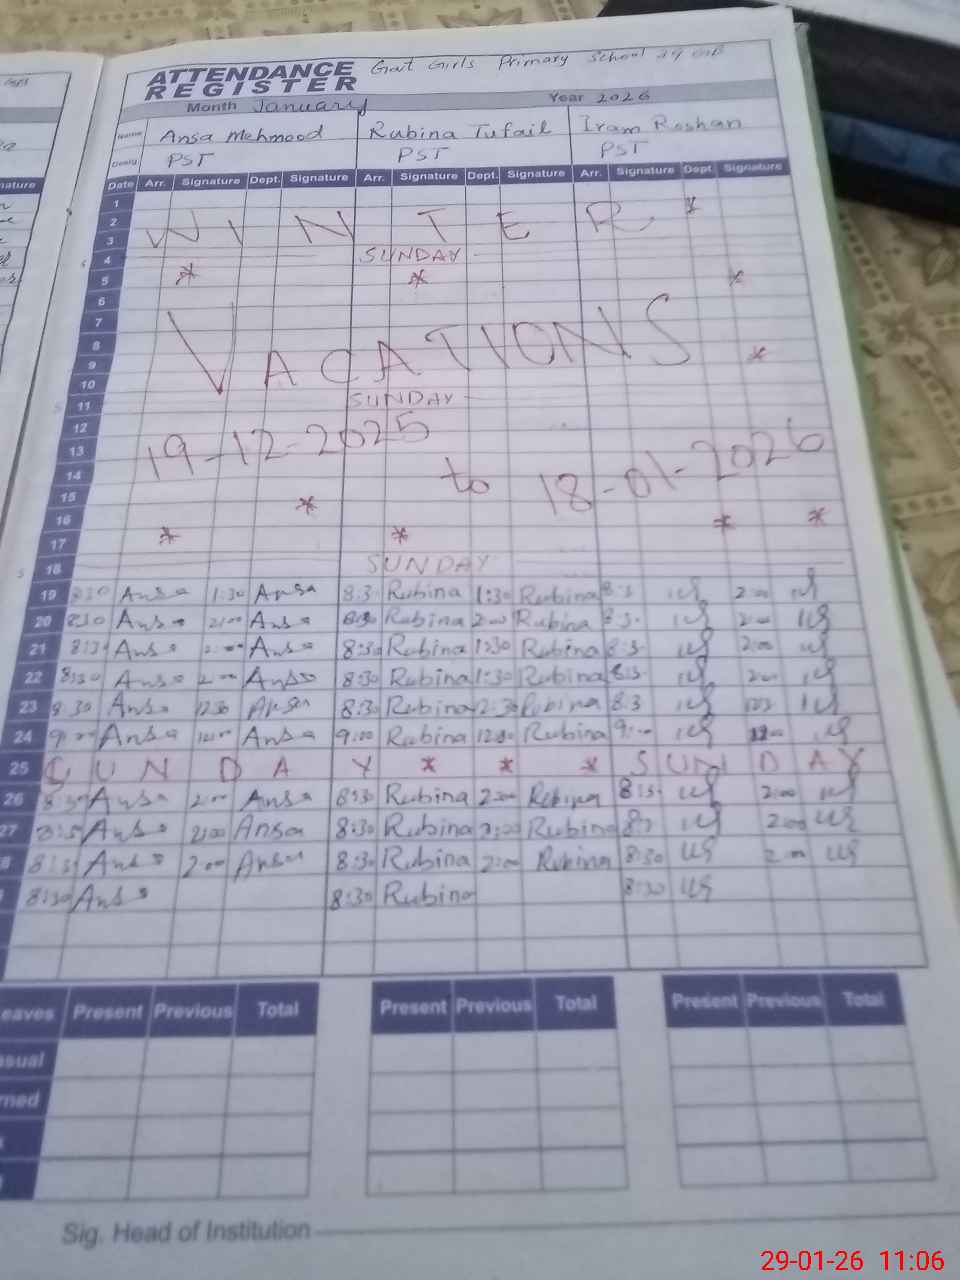 ATTENDANCE REGISTER Govt Girls Primary School
Month January Year 2026
Name Ansa Mehmood Rubina Tufail Iram Roshan
Desig PST PST PST
Date Arr. Signature Dept. Signature Arr. Signature Dept. Signature Arr. Signature Dept. Signature
1
2 WINTER *
3
4 SUNDAY
5 * * *
6
7
8 VACATIONS
9 *
10
11 SUNDAY
12
13 19-12-2025
14 to 18-01-2026
15
16 *
17 * * * *
18 SUNDAY
19 8:30 Ansa 1:30 Ansa 8:3 Rubina 1:30 Rubina 8:3 2:00
20 830 Ansa 2:00 Ansa 8:30 Rubina 2:00 Rubina 8:3. 2:00
21 8:3 Ansa 2:00 Ansa 8:30 Rubina 1:30 Rubina 8:3 2:00
22 8:30 Ansa 2:00 Ansa 8:30 Rubina 1:30 Rubina 8:3. 2:00
23 8:30 Ansa 1230 Ansa 8:30 Rubina 12:30 Rubina 8:3
24 9:00 Ansa Ansa 9:00 Rubina Rubina 9:00
25 SUNDAY * * * SUNDAY
26 8:30 Ansa 2:00 Ansa 8:30 Rubina 2:00 Rubina 8:3. 2:00
27 Ansa 2:00 Ansa 8:30 Rubina 2:00 Rubina 2:00
8 8:3 Ansa 2:00 Ansa 8:30 Rubina 2:00 Rubina 8:30 2:00
8:30 Ansa 8:30 Rubina 8:30
eaves Present Previous Total Present Previous Total Present Previous Total
asual
rned
Sig. Head of Institution
29-01-26 11:06